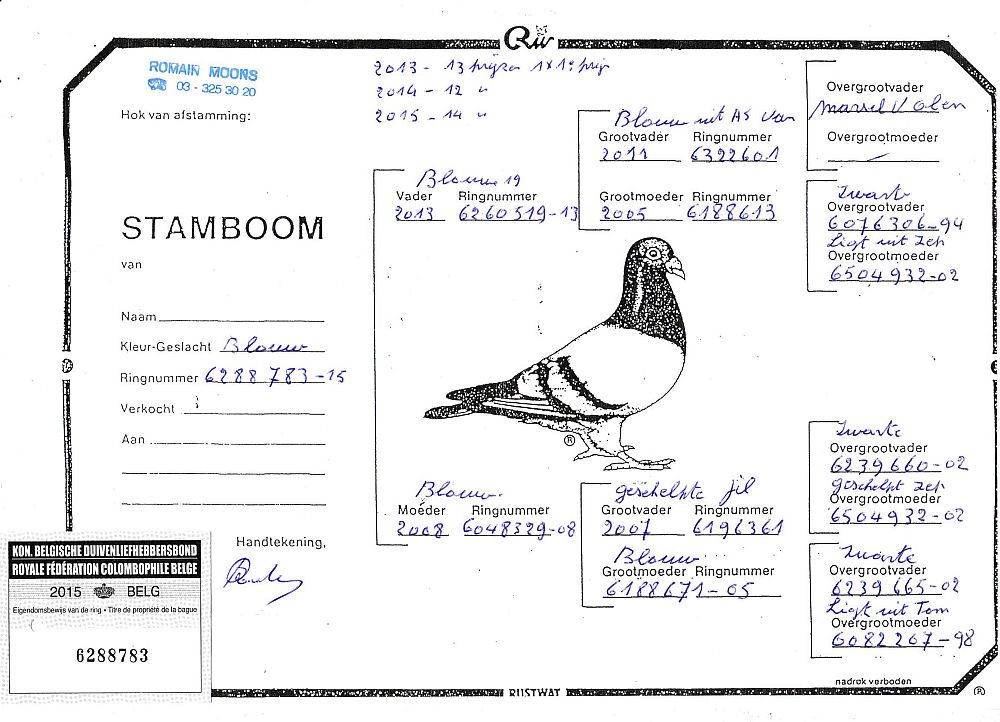 Rüv
ROMAIN MOONS
☎ 03 - 325 30 20
Hok van afstamming:
2013 - 13 prijzen 1x1e prijs
2014 - 12 "
2015 - 14 "
STAMBOOM
van
Naam
Kleur-Geslacht Blauw
Ringnummer 6288783-15
Verkocht
Aan
Handtekening,
KON. BELGISCHE DUIVENLIEFHEBBERSBOND
ROYALE FÉDÉRATION COLOMBOPHILE BELGE
2015 BELG
Eigendomsbewijs van de ring • Titre de propriété de la bague
6288783
Blauwe 19
Vader Ringnummer
2013 6260519-13
Blauw
Moeder Ringnummer
2008 6048329-08
Blauw uit AS Van
Grootvader Ringnummer
2011 6322601
Grootmoeder Ringnummer
2005 6188613
®
geschelpte jil
Grootvader Ringnummer
2007 6196361
Blauw
Grootmoeder Ringnummer
6188671-05
Overgrootvader
Marcel Volen
Overgrootmoeder
Zwarte
Overgrootvader
6076306-94
Ligt uit Zep
Overgrootmoeder
6504932-02
Zwarte
Overgrootvader
6239660-02
geschelpt Zep
Overgrootmoeder
6504932-02
Zwarte
Overgrootvader
6239665-02
Ligt uit Tom
Overgrootmoeder
6082267-98
nadruk verboden
RUSTWAT
®